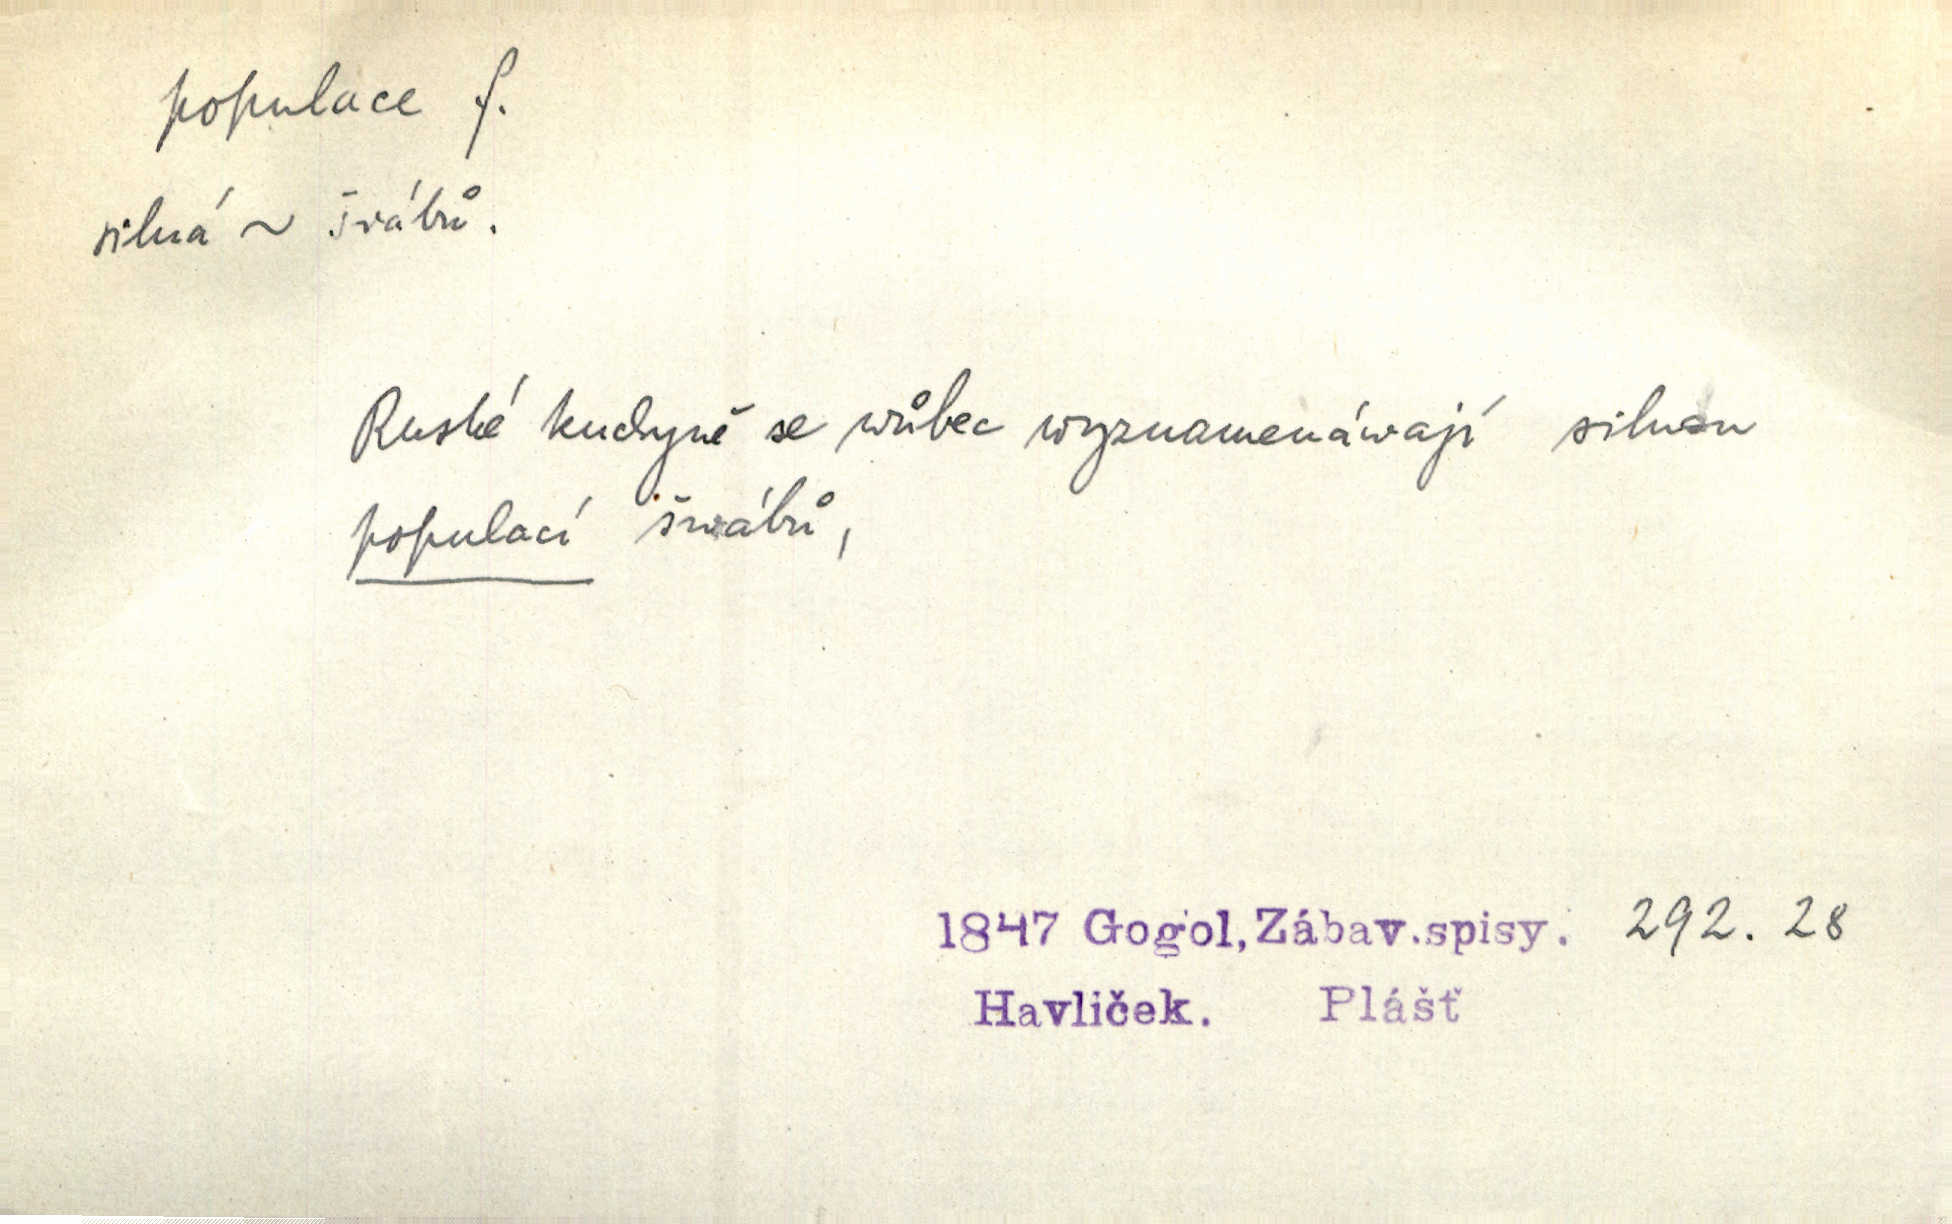 populace f.
silná ~ švábů.
Ruské kuchyně se wůbec wyznamenáwají silnou
populací šwábů,
1847 Gogol, Zábav. spisy. 292. 28
Havliček. Plášť